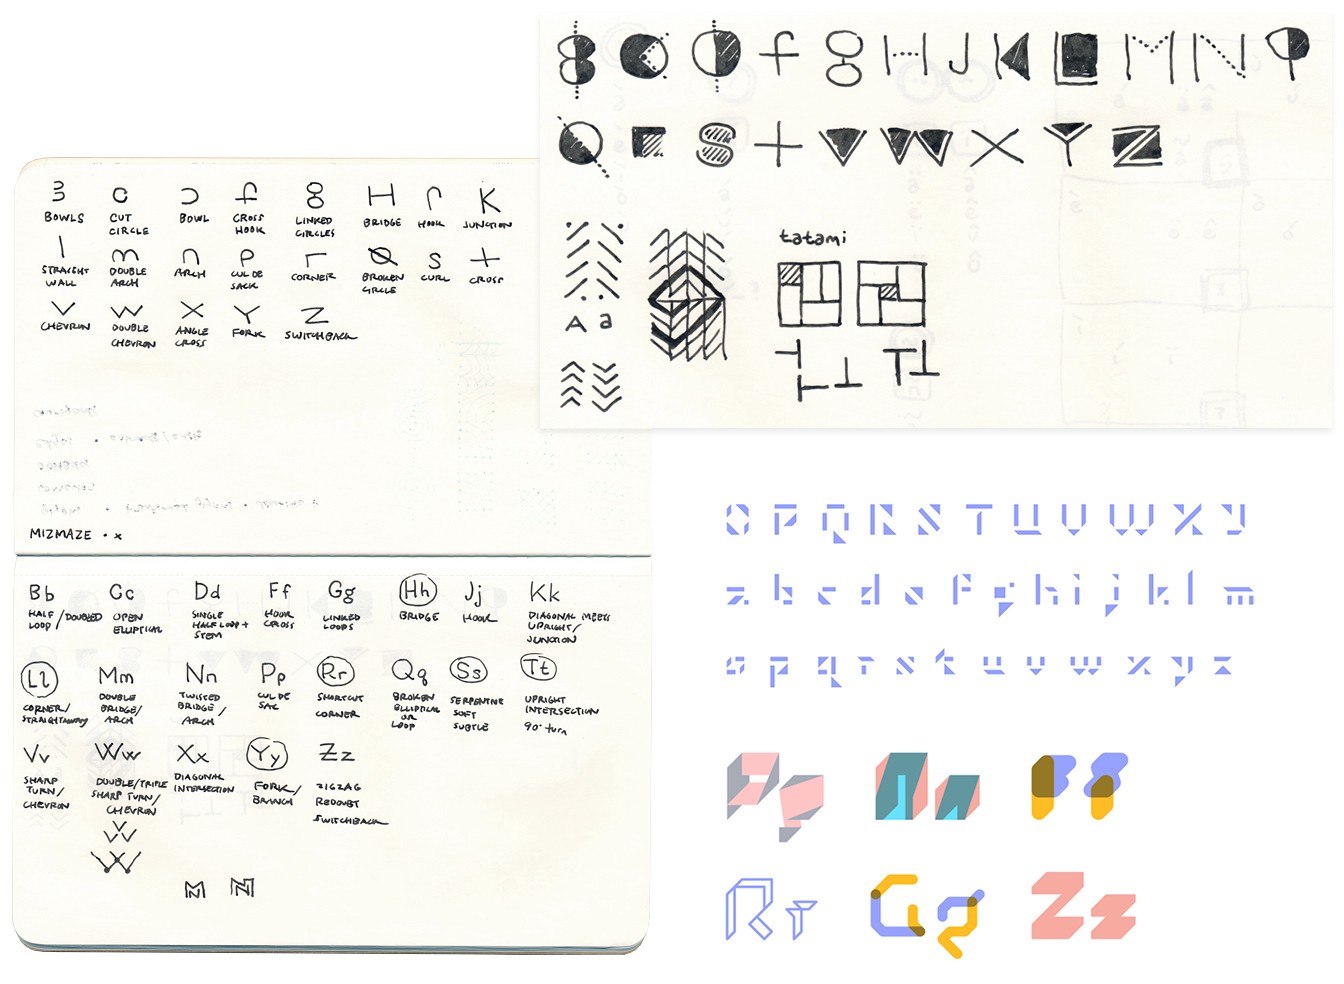 B C D f g H J K L M N P
Q r S t V W X Y Z
tatami
A a
3 c f g H K
BOWLS CUT BOWL CROSS LINKED BRIDGE HOOK JUNCTION
CIRCLE HOOK CIRCLES
l m n p r Q s t
STRAIGHT DOUBLE ARCH CUL DE CORNER BROKEN CURL CROSS
WALL ARCH SACK CIRCLE
V W X Y Z
CHEVRON DOUBLE ANGLE FORK SWITCHBACK
CHEVRON CROSS
MIZMAZE • x
Bb Cc Dd Ff Gg Hh Jj Kk
HALF / DOUBLED OPEN SINGLE HOOK LINKED BRIDGE HOOK DIAGONAL MEETS
LOOP ELLIPTICAL HALF LOOP + CROSS LOOPS UPRIGHT/
STEM JUNCTION
Ll Mm Nn Pp Rr Qq Ss Tt
CORNER/ DOUBLE TWISTED CUL DE SHORTCUT BROKEN SERPENTINE UPRIGHT
STRAIGHTAWAY BRIDGE/ BRIDGE/ SAC CORNER ELLIPTICAL SOFT INTERSECTION
ARCH ARCH OR SUBTLE 90° turn
LOOP
Vv Ww Xx Yy Zz
SHARP DOUBLE/TRIPLE DIAGONAL FORK/ ZIGZAG
TURN/ SHARP TURN/ INTERSECTION BRANCH REDOUBT
CHEVRON CHEVRON SWITCHBACK
V
VV
W
M N
O P Q R S T U V W X Y
a b c d e f g h i j k l m
o p q r s t u v w x y z
Pp Nn Ff
Rr Gg Zz